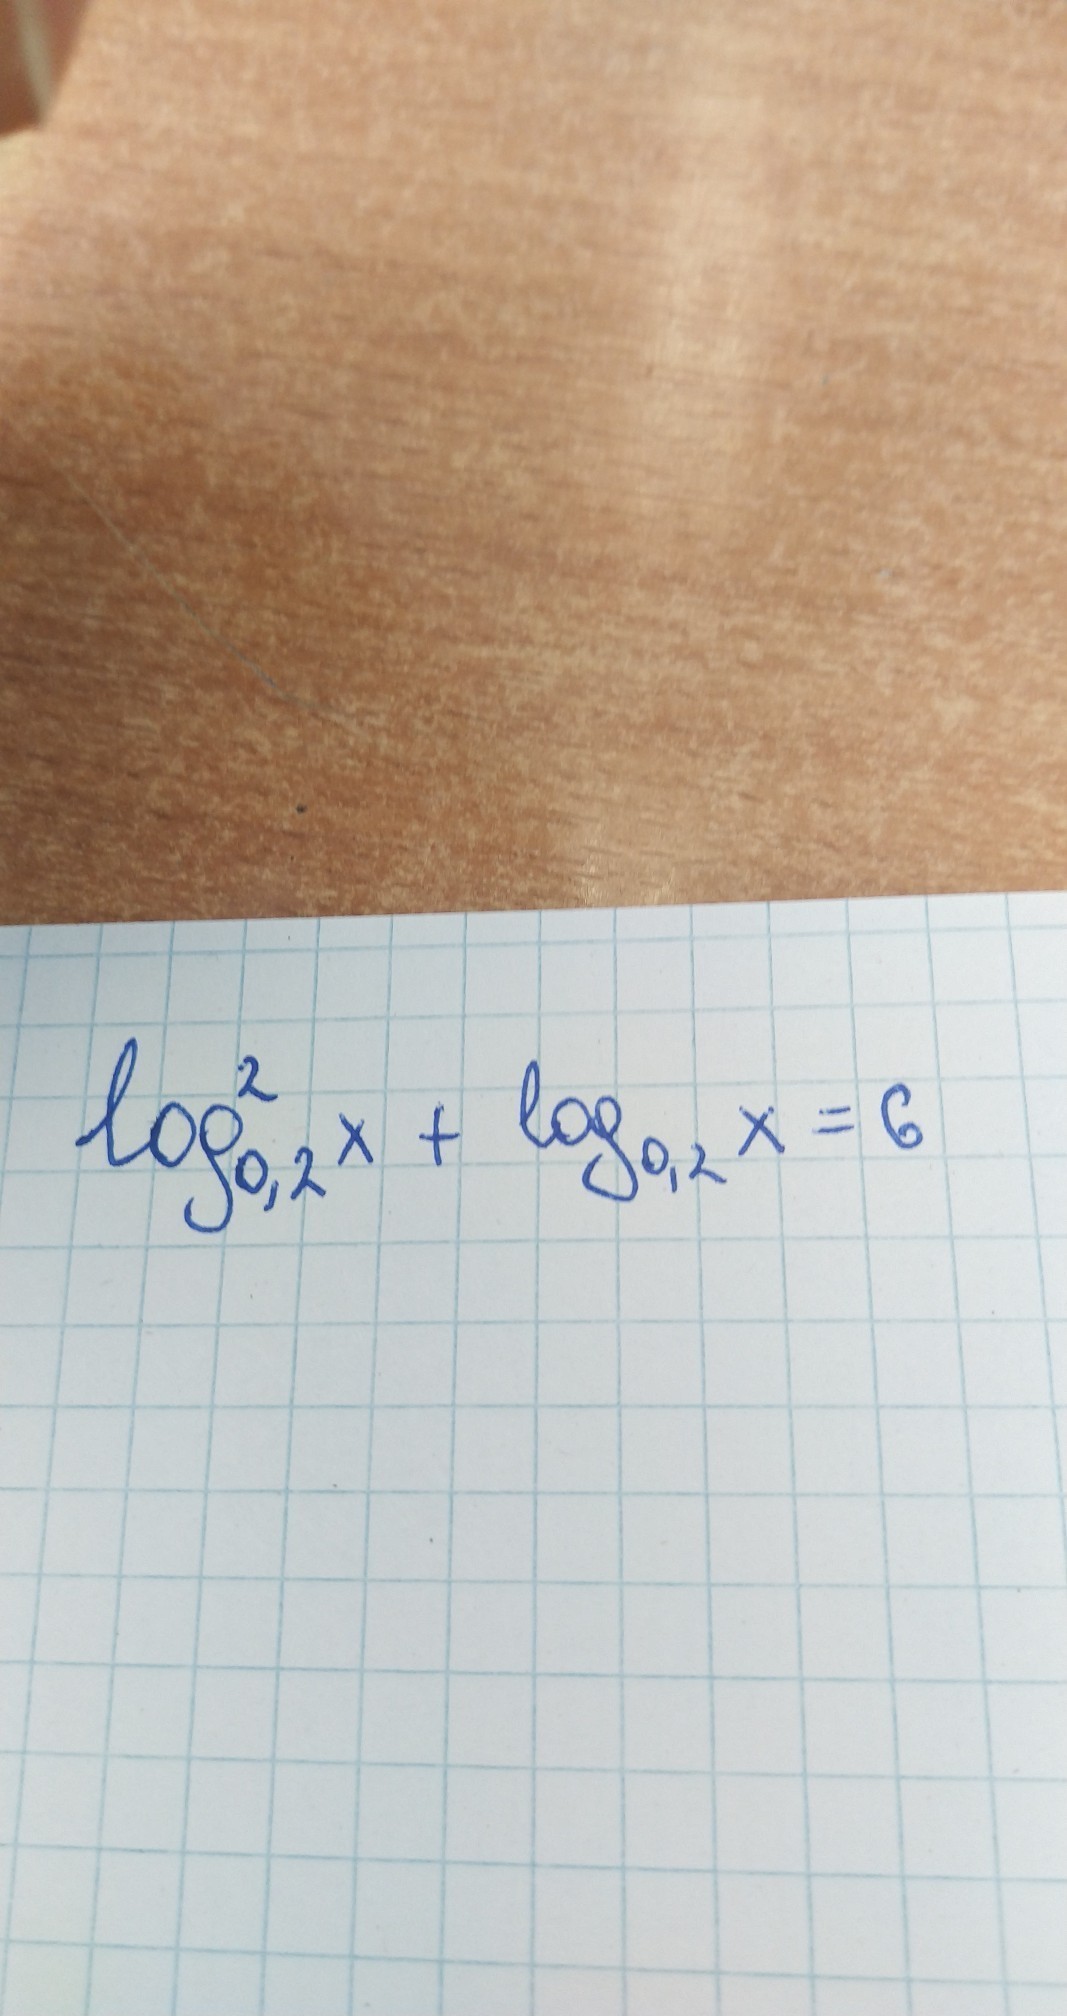 log²₀,₂ x + log₀,₂ x = 6